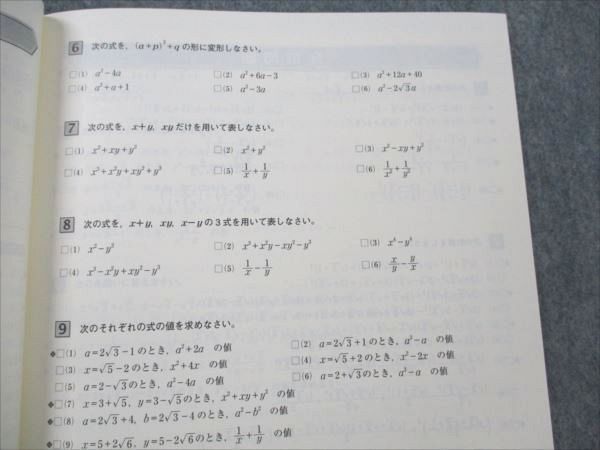 6 次の式を，(a+p)²+q の形に変形しなさい。
□(1) a²−4a □(2) a²+6a−3 □(3) a²+12a+40
□(4) a²+a+1 □(5) a²−3a □(6) a²−2√3a
7 次の式を，x+y，xyだけを用いて表しなさい。
□(1) x²+xy+y² □(2) x²+y² □(3) x²−xy+y²
□(4) x³+x²y+xy²+y³ □(5) 1/x+1/y □(6) 1/x²+1/y²
8 次の式を，x+y，xy，x−yの3式を用いて表しなさい。
□(1) x²−y² □(2) x³+x²y−xy²−y³ □(3) x⁴−y⁴
□(4) x³−x²y+xy²−y³ □(5) 1/x−1/y □(6) x/y−y/x
9 次のそれぞれの式の値を求めなさい。
❖□(1) a=2√3−1のとき，a²+2a の値 □(2) a=2√3+1のとき，a²−a の値
□(3) x=√5−2のとき，x²+4x の値 □(4) x=√5+2のとき，x²−2x の値
□(5) a=2−√3のとき，a²−4a の値 □(6) a=2+√3のとき，a²−a の値
❖□(7) x=3+√5，y=3−√5のとき，x²+xy+y² の値
❖□(8) a=2√3+4，b=2√3−4のとき，a²−b² の値
❖□(9) x=5+2√6，y=5−2√6のとき，1/x+1/y の値